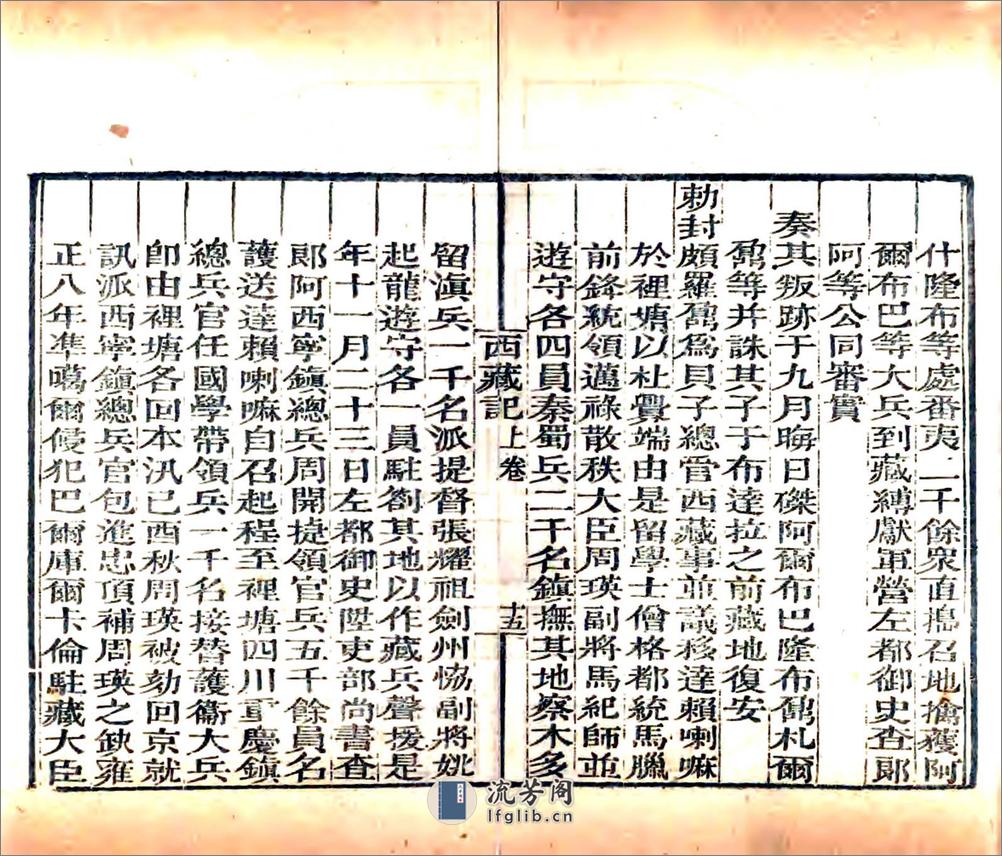 什隆布等處番夷二千餘衆直搗召地擒獲阿
爾布巴等大兵到藏縛獻軍營左都御史查郎
阿等公同審實
奏其叛跡于九月晦日磔阿爾布巴隆布鼐札爾
鼐等并誅其子于布達拉之前藏地復安
勅封頗羅鼐爲貝子總管西藏事並議移達賴喇嘛
於裡塘以杜釁端由是留學士僧格都統馬臘
前鋒統領邁祿散秩大臣周瑛副將馬紀師並
遊守各四員秦蜀兵二千名鎮撫其地察木多
西藏記上卷 十五
留滇兵一千名派提督張耀祖劍州恊副將姚
起龍遊守各一員駐劄其地以作藏兵聲援是
年十一月二十三日左都御史陞吏部尚書查
郎阿西寧鎮總兵周開捷領官兵五千餘員名
護送達賴喇嘛自召起程至裡塘四川重慶鎮
總兵官任國學帶領兵一千名接替護衞大兵
卽由裡塘各回本汛已酉秋周瑛被劾回京就
訊派西寧鎮總兵官包進忠頂補周瑛之缺雍
正八年凖噶爾侵犯巴爾庫爾卡倫駐藏大臣
流芳阁
lfglib.cn